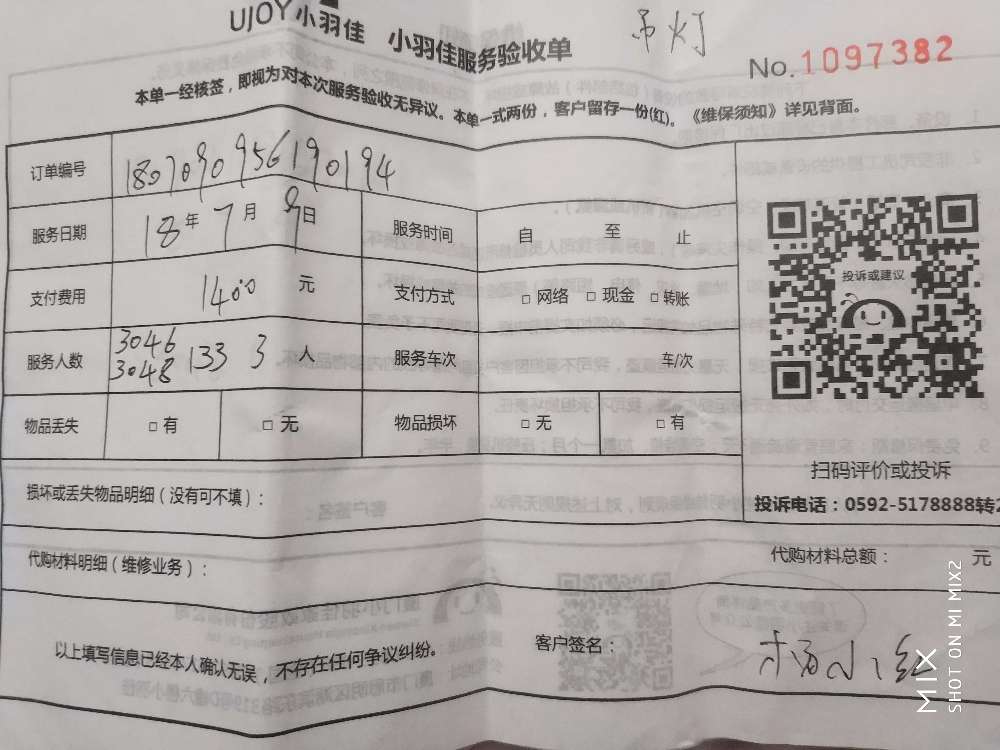 UJOY小羽佳 小羽佳服务验收单 吊灯
No.1097382
本单一经核签，即视为对本次服务验收无异议。本单一式两份，客户留存一份(红)。《维保须知》详见背面。
订单编号 1807090956190194
服务日期 18年7月9日 服务时间 自 至 止
支付费用 1400 元 支付方式 □ 网络 □ 现金 □ 转账
服务人数 3046 3048 133 3 人 服务车次 车/次
物品丢失 □ 有 □ 无 物品损坏 □ 无 □ 有
投诉或建议
扫码评价或投诉
投诉电话：0592-5178888转2
损坏或丢失物品明细（没有可不填）：
代购材料明细（维修业务）： 代购材料总额： 元
以上填写信息已经本人确认无误，不存在任何争议纠纷。 客户签名： 杨小红
MIX
SHOT ON MI MIX2